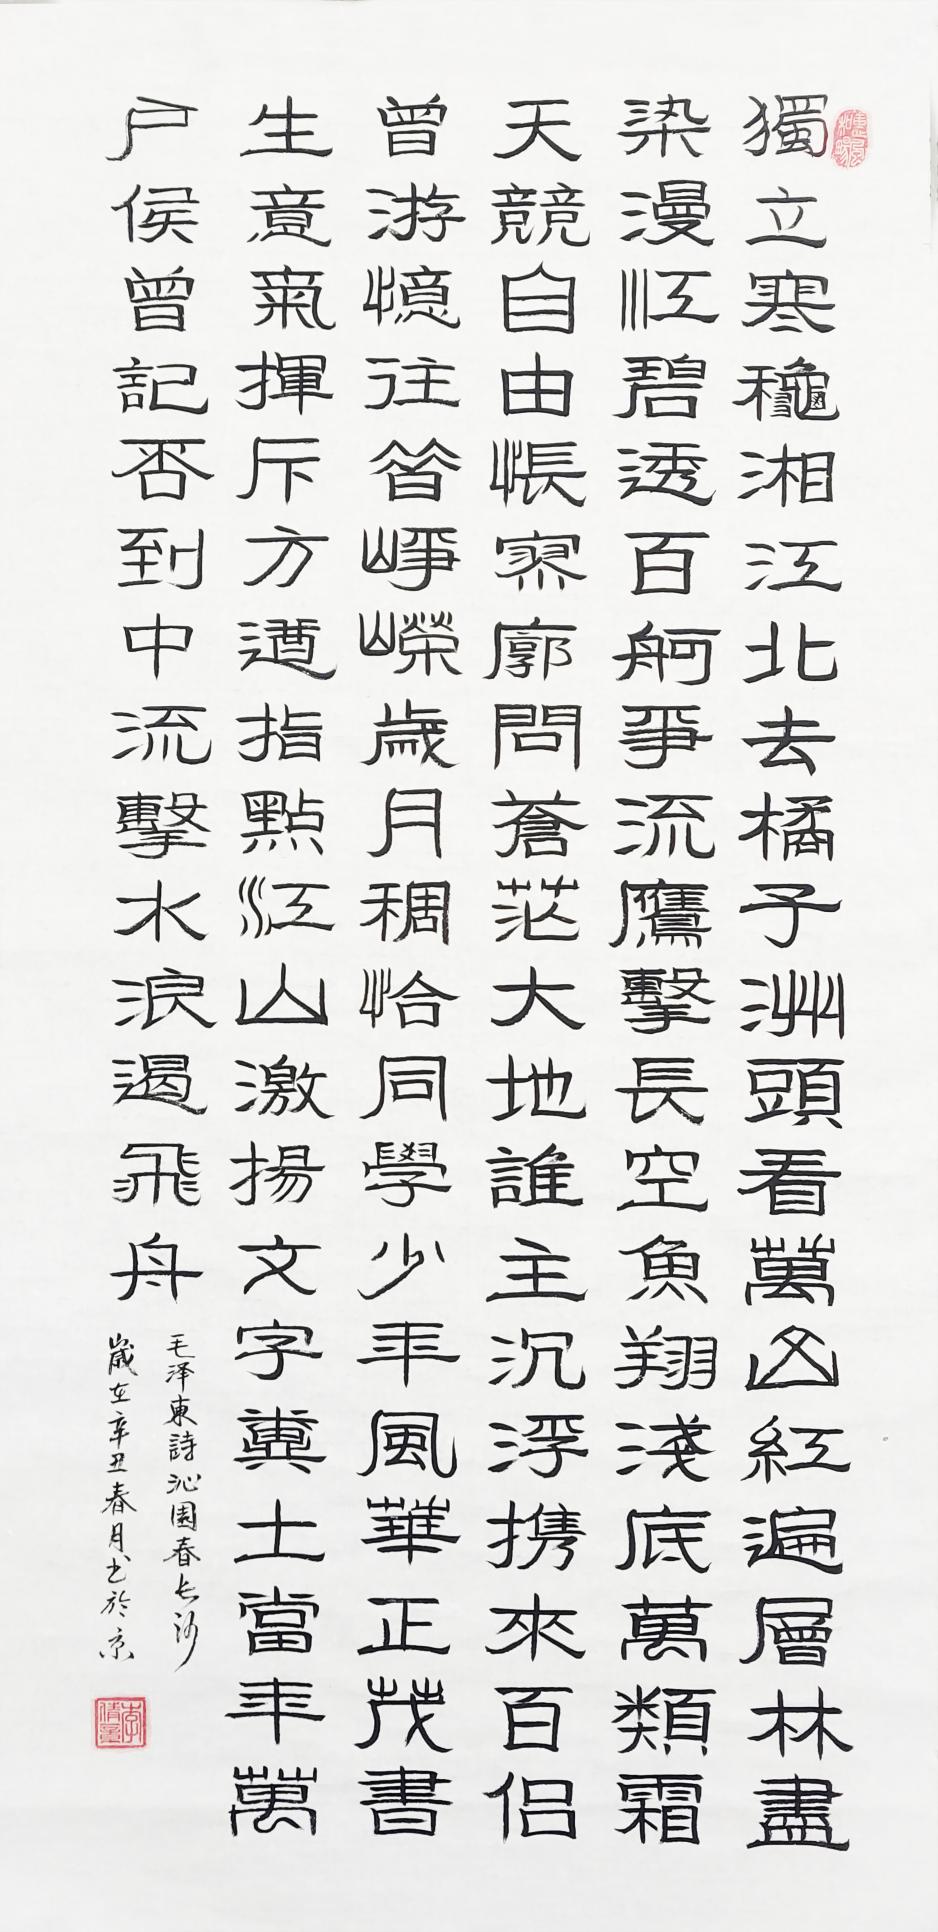 獨立寒龝湘江北去橘子洲頭看萬山紅遍層林盡
染漫江碧透百舸爭流鷹擊長空魚翔淺底萬類霜
天競自由悵寥廓問蒼茫大地誰主沉浮携來百侣
曾游憶往昔崢嶸歲月稠恰同學少年風華正茂書
生意氣揮斥方遒指點江山激揚文字糞土當年萬
户侯曾記否到中流擊水浪遏飛舟
毛泽東詩沁園春长沙
歲在辛丑春月书於京
惠風和暢